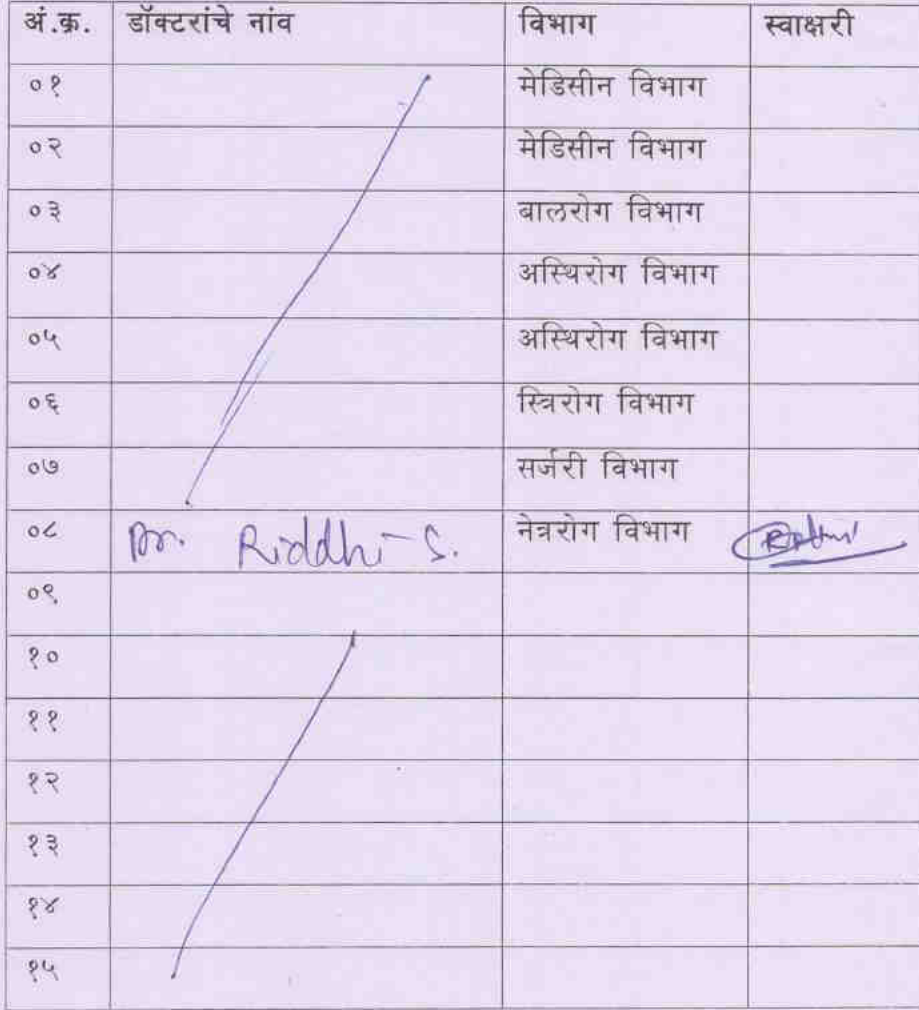 अं.क्र. डॉक्टरांचे नांव विभाग स्वाक्षरी
०१ मेडिसीन विभाग
०२ मेडिसीन विभाग
०३ बालरोग विभाग
०४ अस्थिरोग विभाग
०५ अस्थिरोग विभाग
०६ स्त्रिरोग विभाग
०७ सर्जरी विभाग
०८ Dr. Riddhi S. नेत्ररोग विभाग
०९
१०
११
१२
१३
१४
१५